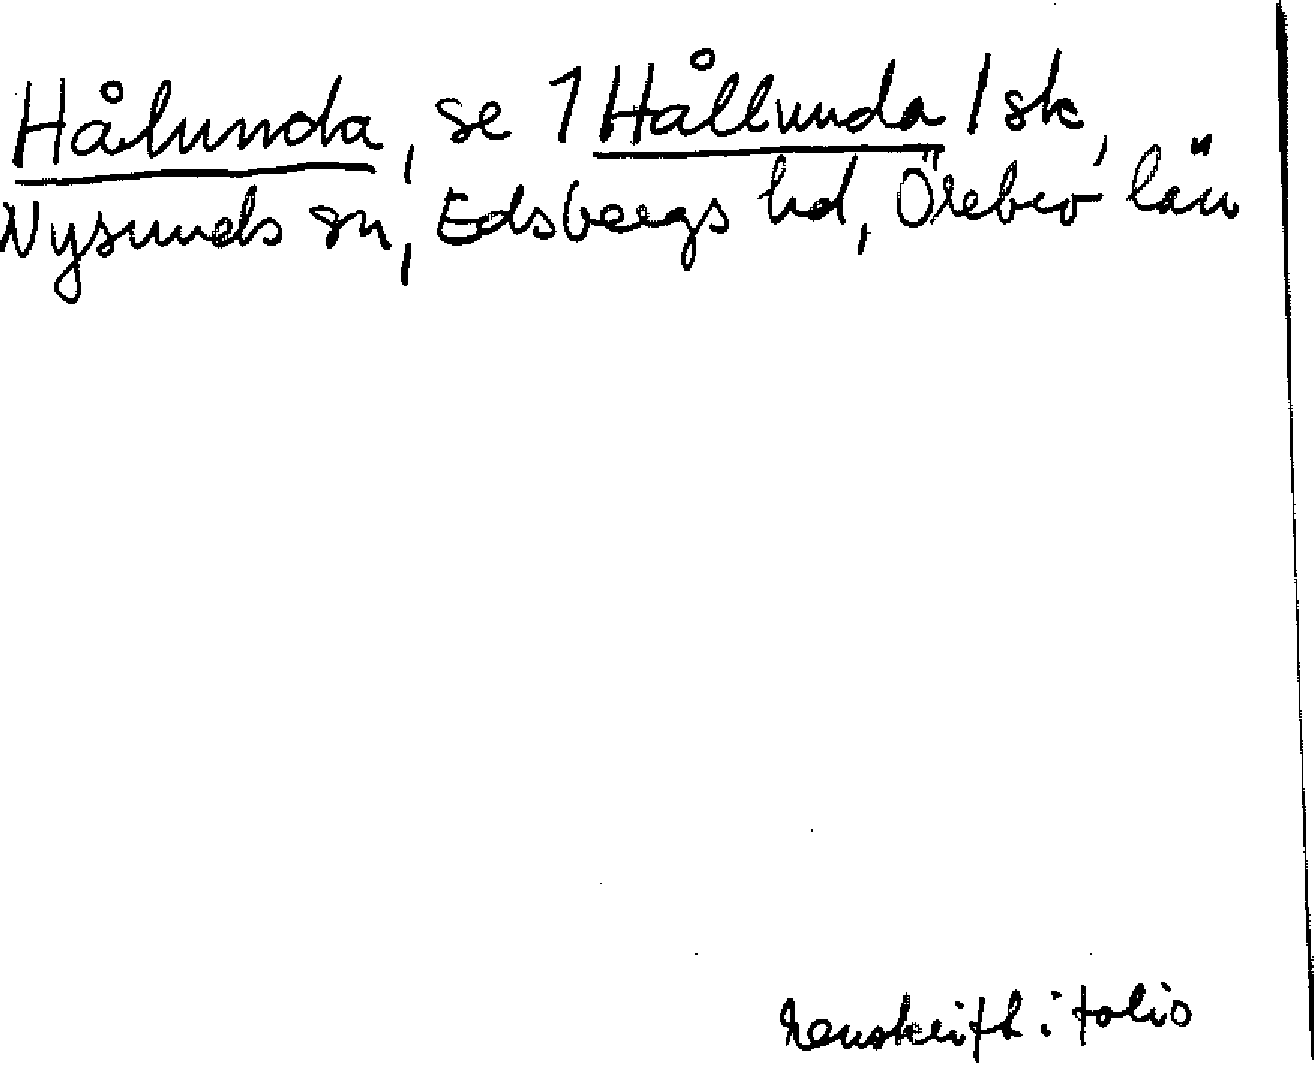 Hålunda, se 1 Hållunda 1 sk,
Nysunds sn, Edsbergs hd, Örebro län
renskrift i folio